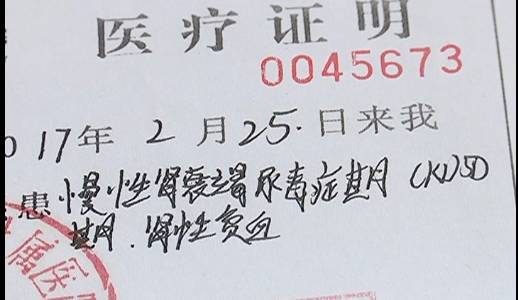 医疗证明
0045673
017年2月25.日来我
患慢性肾衰竭尿毒症期(CKD5
期.肾性贫血
属医